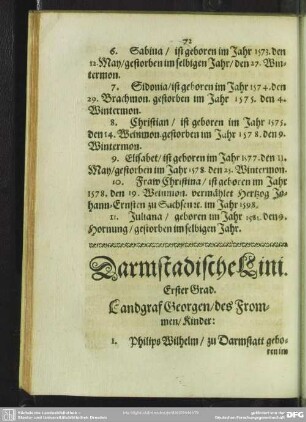 72
6. Sabina / ist geboren im Jahr 1573. den
12. May/gestorben im selbigen Jahr/ den 27. Win-
termon.
7. Sidonia/ist geboren im Jahr 1574. den
29. Brachmon. gestorben im Jahr 1575. den 4.
Wintermon.
8. Christian / ist geboren im Jahr 1575.
den 14. Weinmon. gestorben im Jahr 1578. den 9.
Wintermon.
9. Elisabet/ist geboren im Jahr 1577. den 11.
May/gestorben im Jahr 1578. den 25. Wintermon.
10. Fraw Christina / ist geboren im Jahr
1578. den 19. Weinmon. vermählet Hertzog Jo-
hann-Ernsten zu Sachsen ꝛc. im Jahr 1598.
11. Juliana / geboren im Jahr 1581. den 9.
Hornung / gestorben im selbigen Jahr.
Darmstadische Lini.
Erster Grad.
Landgraf Georgen/des From-
men/Kinder:
1. Philips Wilhelm / zu Darmstatt gebo-
ren im